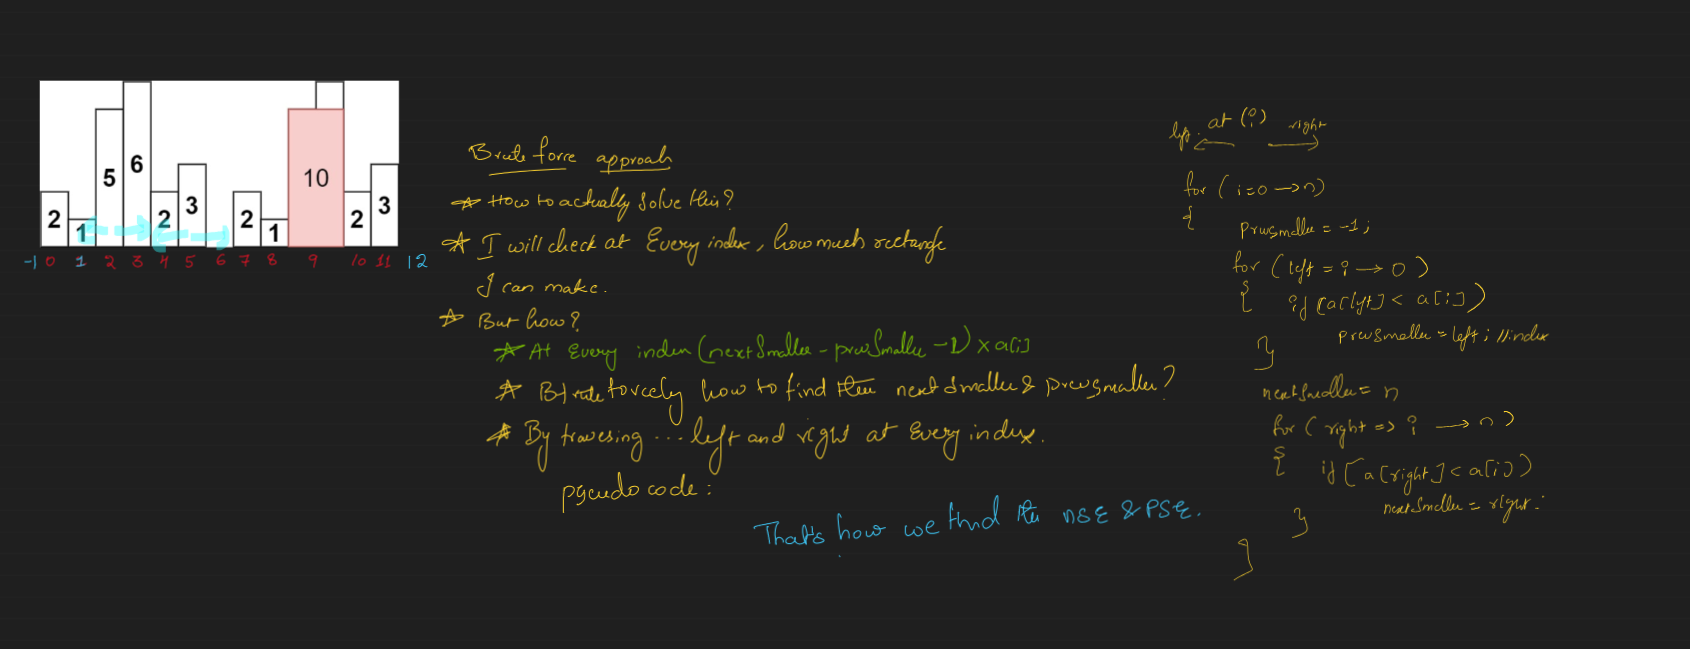 2 1 5 6 2 3 2 1 10 2 3
-1 0 1 2 3 4 5 6 7 8 9 10 11 12
Brute force approah
* How to actually solve this?
* I will check at Every index, how much rectange
I can make.
* But how?
* At Every index (nextSmaller - prevSmaller -1) x a[i]
* Brute forcely how to find the nextsmaller & prevsmaller?
* By travesing ... left and right at Every index.
pseudo code :
That's how we find the NSE & PSE.
at (i)
left right
for ( i=0 → n)
{
prevsmaller = -1 ;
for ( left = i → 0 )
{ if (a[left] < a[i])
prevSmaller = left ; //index
}
nextSmaller = n
for ( right => i → n )
{ if [a[right] < a[i])
nextSmaller = right ;
}
}